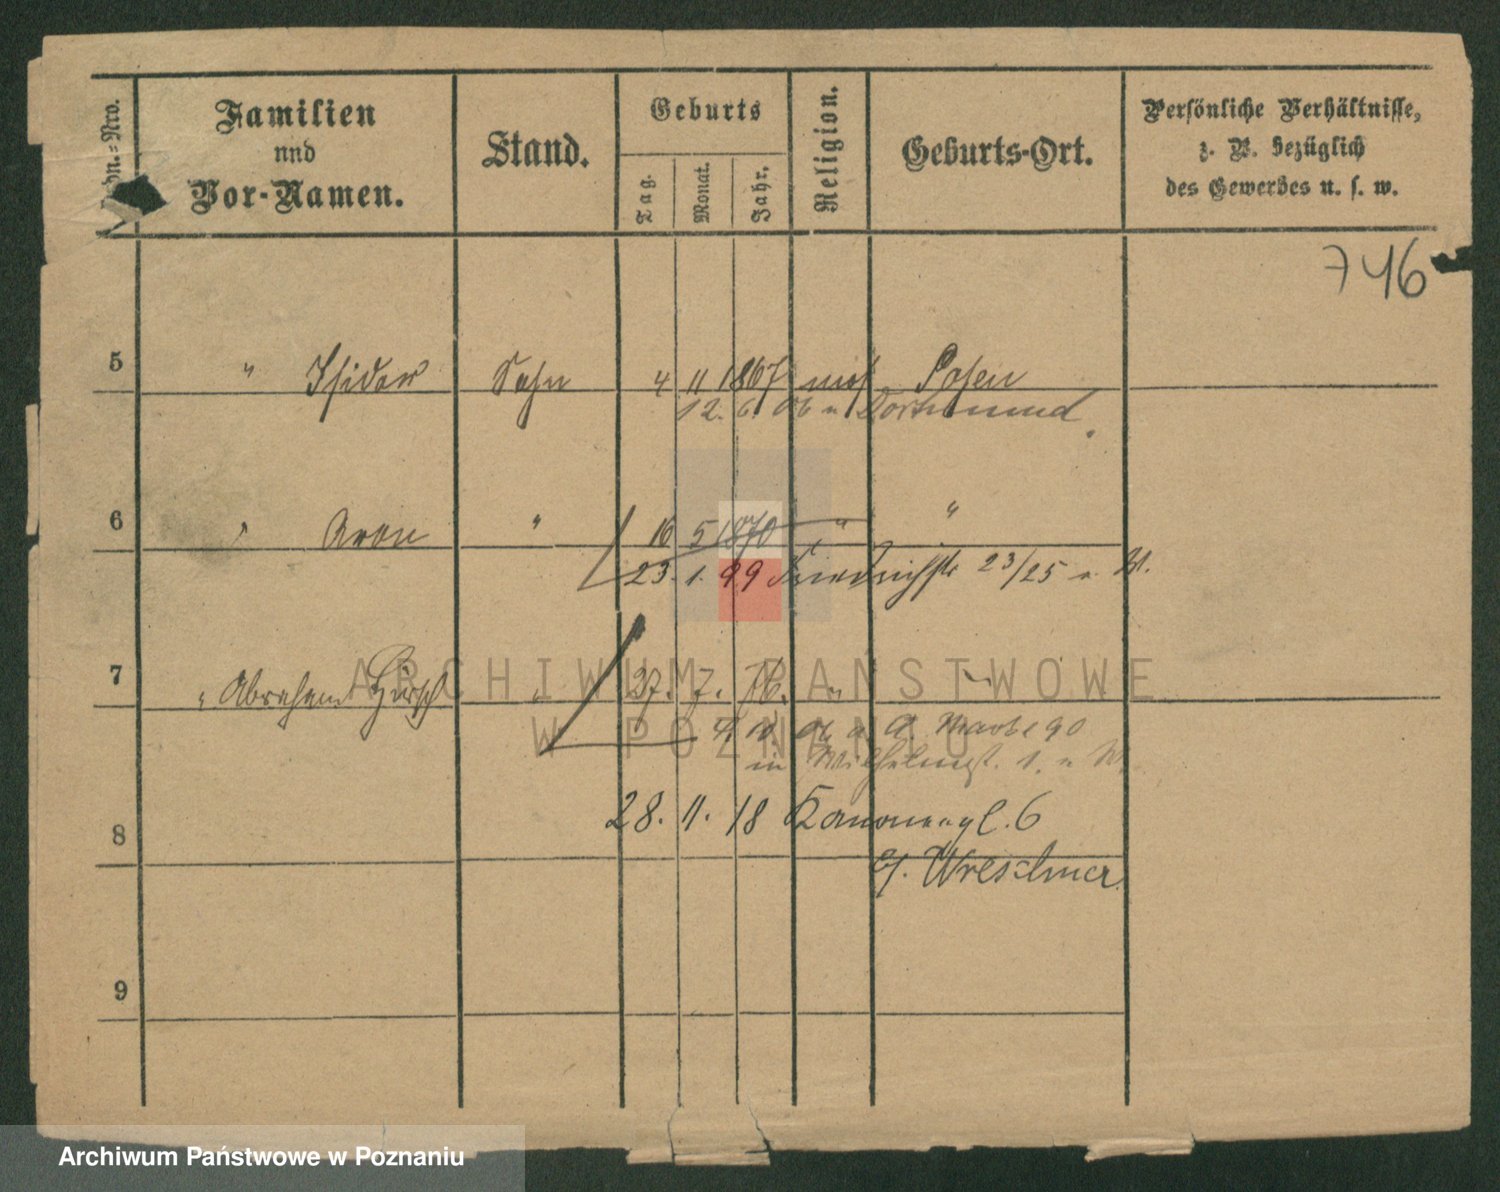 Ordn.-Nro.
Familien
und
Vor-Namen.
Stand.
Geburts
Tag.
Monat.
Jahr.
Religion.
Geburts-Ort.
Persönliche Verhältnisse,
z. B. bezüglich
des Gewerbes u. s. w.
746
5 " Isidor Sohn 4 11 1867 mos Posen
12. 6. 06 n Dortmund
6 " Aron " 16 5 1870 " "
23. 1. 99 Friedrichstr 23/25 n. W.
7 " Abraham Hirsch " 27. 7. 76. " "
a. A. Markt 90
in Wilhelmst. 1.
8
28. 11. 18 Kanonenpl. 6
b/. Wreschner.
9
ARCHIWUM PAŃSTWOWE
W POZNANIU
Archiwum Państwowe w Poznaniu